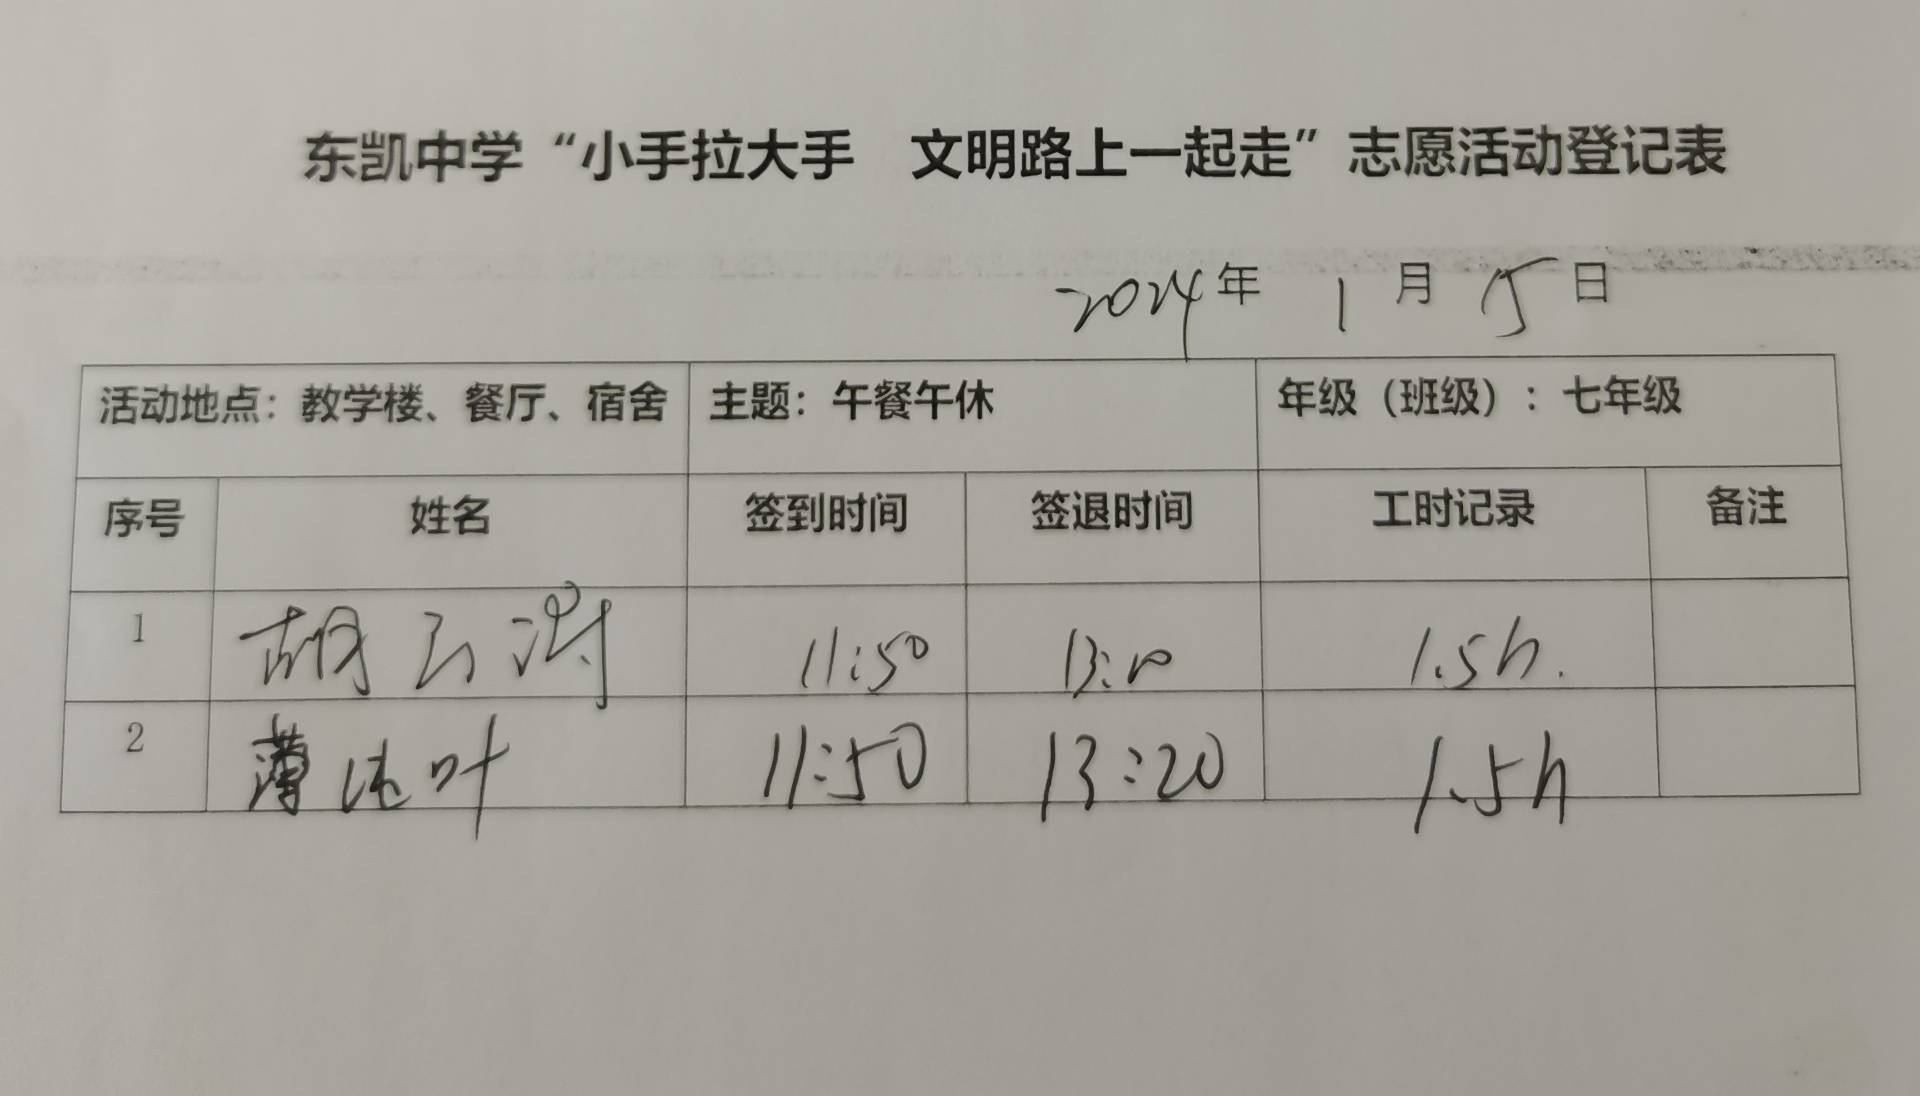 东凯中学“小手拉大手 文明路上一起走”志愿活动登记表
2024年 1 月 15 日
活动地点：教学楼、餐厅、宿舍 主题：午餐午休 年级（班级）：七年级
序号 姓名 签到时间 签退时间 工时记录 备注
1 胡云 11:50 1.5h.
2 薄 叶 11:50 13:20 1.5h